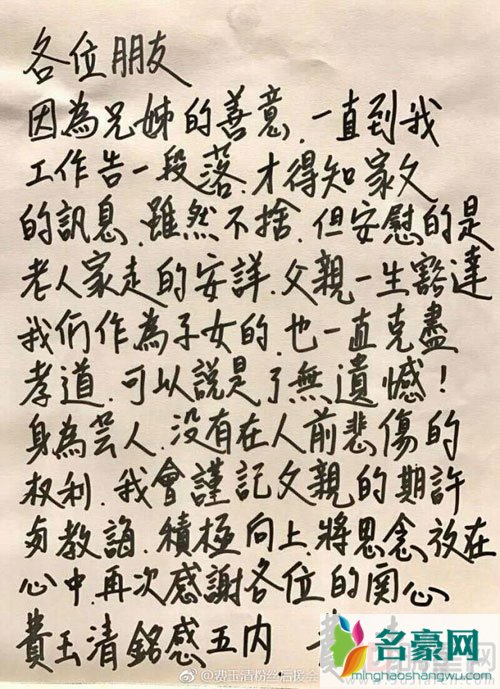 各位朋友
因為兄姊的善意.一直到我
工作告一段落.才得知家父
的訊息.雖然不捨.但安慰的是
老人家走的安詳.父親一生豁達
我們作為子女的.也一直克盡
孝道.可以說是了無遺憾!
身為芸人.没有在人前悲傷的
权利.我會謹記父親的期許
与教誨.積極向上.將思念放在
心中.再次感謝各位的関心
費玉清銘感五内
@费玉清粉丝后援会
名豪网
minghaoshangye.com